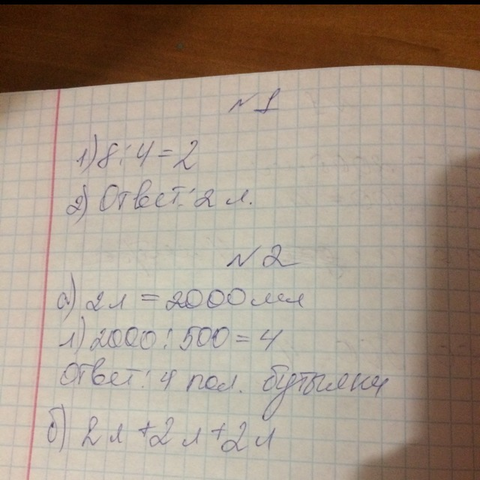 №1
1) 8:4=2
2) Ответ: 2 л.
№2
а) 2л = 2000мл
1) 2000:500=4
Ответ: 4 пол. бутылки
б) 2л+2л+2л